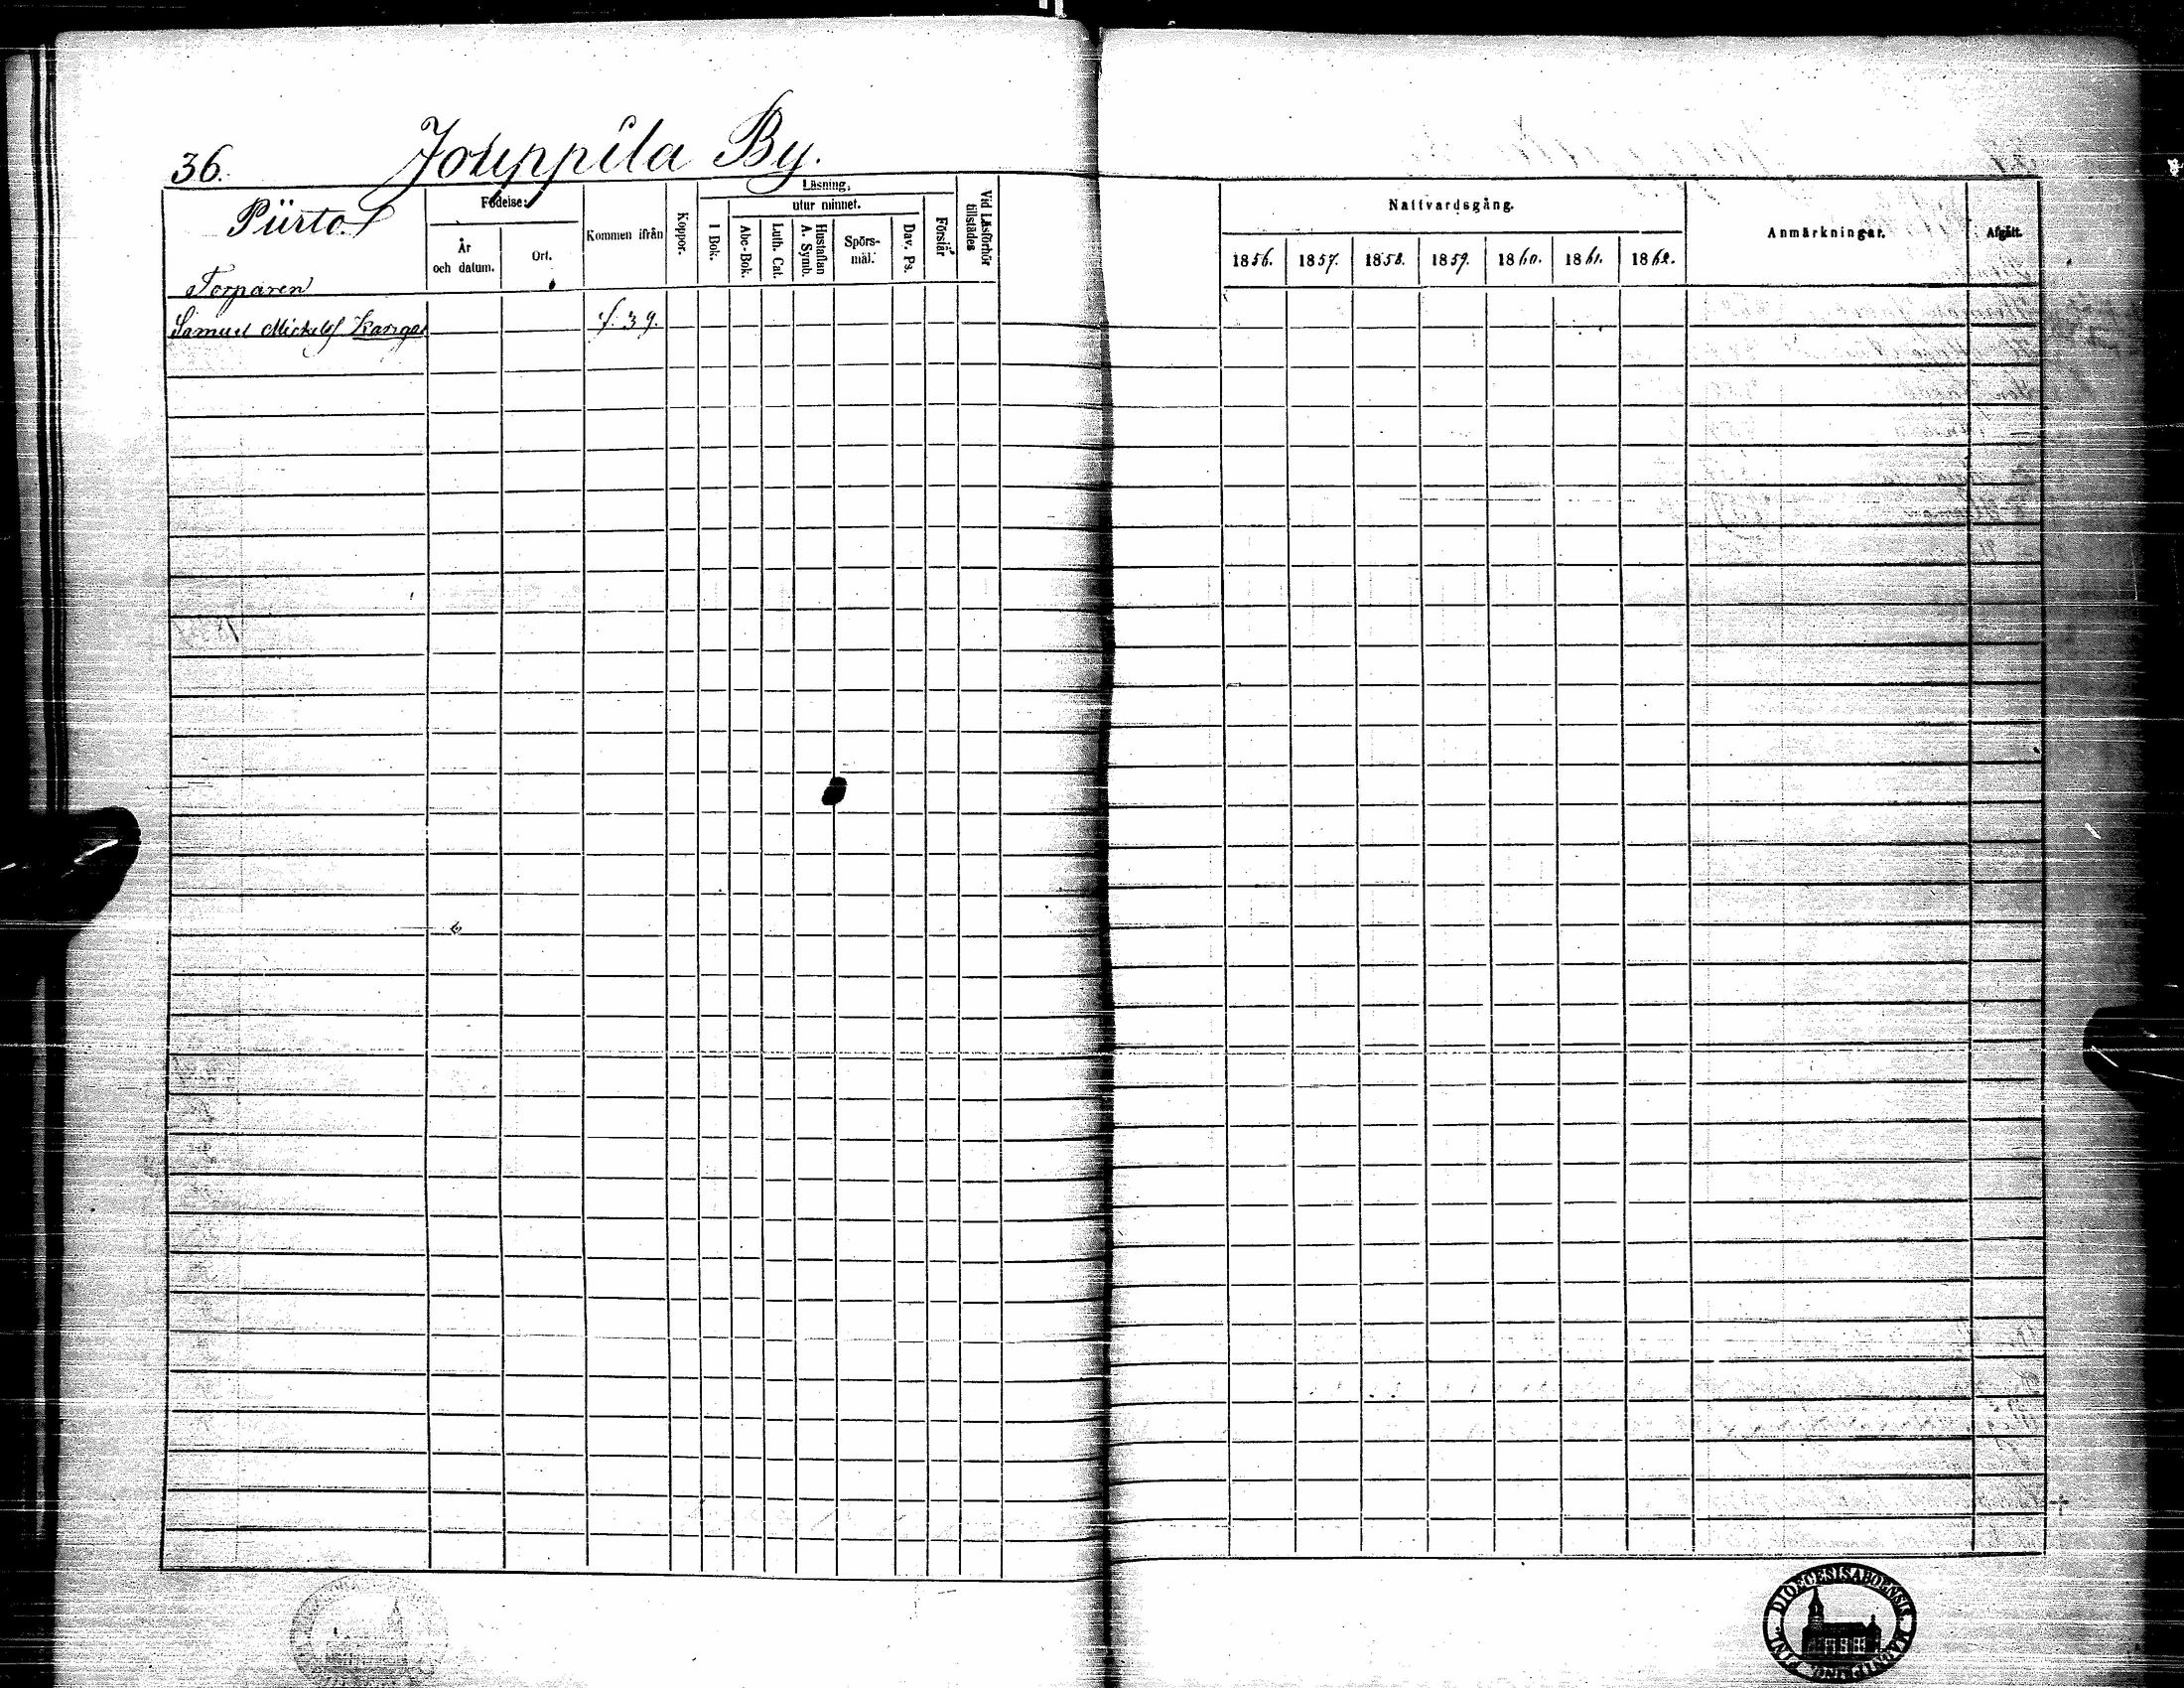 36. Jouppila By.
Piirto.
Födelse:
År och datum.
Ort.
Kommen ifrån
Koppor.
Läsning,
I Bok.
utur minnet.
Abc-Bok.
Luth. Cat.
Hustaflan A. Symb.
Spörs-mål.
Dav. Ps.
Förstår
Vid Läsförhör tillstädes
Nattvardsgång.
1856. 1857. 1858. 1859. 1860. 1861. 1862.
Anmärkningar.
Afgått.
Torparen
Samuel Mickels Kangas f. 39.
DIOECESIS ABOENSIS